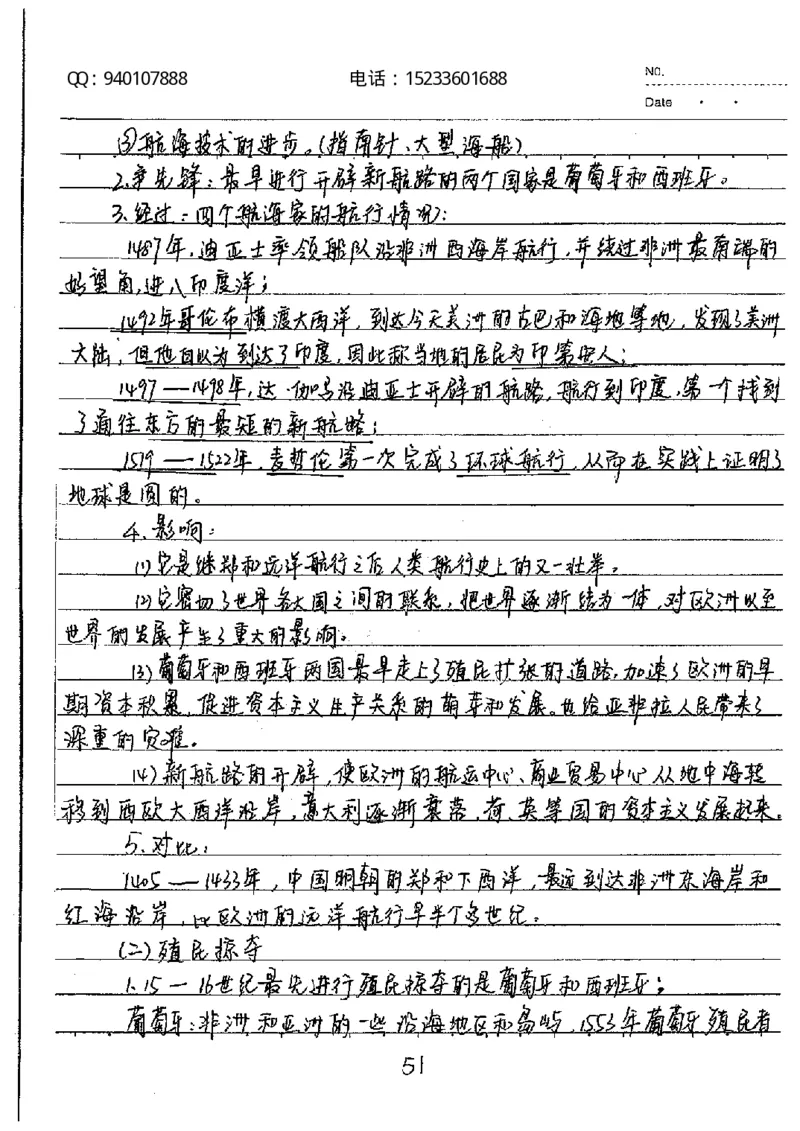 QQ：940107888
电话：15233601688
NO.
Date
③航海技术的进步。(指南针、大型海船)
2.争先锋：最早进行开辟新航路的两个国家是葡萄牙和西班牙。
3.经过：四个航海家的航行情况：
1487年，迪亚士率领船队沿非洲西海岸航行，并绕过非洲最南端的
好望角，进入印度洋；
1492年哥伦布横渡大西洋，到达今天美洲的古巴和海地等地，发现了美洲
大陆，但他自以为到达了印度，因此称当地的居民为印第安人；
1497—1498年，达·伽马沿迪亚士开辟的航路，航行到印度，第一个找到
了通往东方的最短的新航路；
1519—1522年，麦哲伦第一次完成了环球航行，从而在实践上证明了
地球是圆的。
4.影响：
(1)它是继郑和远洋航行之后人类航行史上的又一壮举。
(2)它密切了世界各大国之间的联系，把世界逐渐结为一体，对欧洲以至
世界的发展产生了重大的影响。
(3)葡萄牙和西班牙两国最早走上了殖民扩张的道路，加速了欧洲的早
期资本积累，促进资本主义生产关系的萌芽和发展。也给亚非拉人民带来了
深重的灾难。
(4)新航路的开辟，使欧洲的航运中心、商业贸易中心从地中海转
移到西欧大西洋沿岸，意大利逐渐衰落，荷、英等国的资本主义发展起来。
5.对比：
1405—1433年，中国明朝的郑和下西洋，最远到达非洲东海岸和
红海沿岸，比欧洲的远洋航行早半个多世纪。
(二)殖民掠夺
1.15—16世纪最先进行殖民掠夺的是葡萄牙和西班牙；
葡萄牙：非洲和亚洲的一些沿海地区和岛屿，1553年葡萄牙殖民者
51